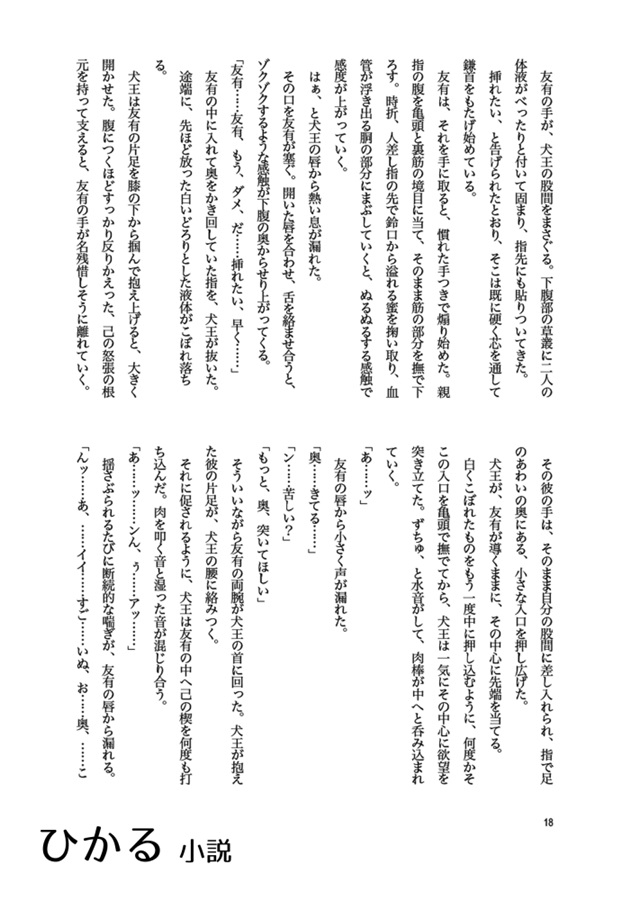 友有の手が、犬王の股間をまさぐる。下腹部の草叢に二人の
体液がべったりと付いて固まり、指先にも貼りついてきた。
挿れたい、と告げられたとおり、そこは既に硬く芯を通して
鎌首をもたげ始めている。
友有は、それを手に取ると、慣れた手つきで煽り始めた。親
指の腹を亀頭と裏筋の境目に当て、そのまま筋の部分を撫で下
ろす。時折、人差し指の先で鈴口から溢れる蜜を掬い取り、血
管が浮き出る胴の部分にまぶしていくと、ぬるぬるする感触で
感度が上がっていく。
はぁ、と犬王の唇から熱い息が漏れた。
その口を友有が塞ぐ。開いた唇を合わせ、舌を絡ませ合うと、
ゾクゾクするような感触が下腹の奥からせり上がってくる。
「友有……友有、もう、ダメ、だ……挿れたい、早く……」
友有の中に入れて奥をかき回していた指を、犬王が抜いた。
途端に、先ほど放った白いどろりとした液体がこぼれ落ち
る。
犬王は友有の片足を膝の下から掴んで抱え上げると、大きく
開かせた。腹につくほどすっかり反りかえった、己の怒張の根
元を持って支えると、友有の手が名残惜しそうに離れていく。
その彼の手は、そのまま自分の股間に差し入れられ、指で足
のあわいの奥にある、小さな入口を押し広げた。
犬王が、友有が導くままに、その中心に先端を当てる。
白くこぼれたものをもう一度中に押し込むように、何度かそ
この入口を亀頭で撫でてから、犬王は一気にその中心に欲望を
突き立てた。ずちゅ、と水音がして、肉棒が中へと呑み込まれ
ていく。
「あ……ッ」
友有の唇から小さく声が漏れた。
「奥……きてる……」
「ン……苦しい？」
「もっと、奥、突いてほしい」
そういいながら友有の両腕が犬王の首に回った。犬王が抱え
た彼の片足が、犬王の腰に絡みつく。
それに促されるように、犬王は友有の中へ己の楔を何度も打
ち込んだ。肉を叩く音と湿った音が混じり合う。
「あ……ッ……ンん、ぅ……アッ……」
揺さぶられるたびに断続的な喘ぎが、友有の唇から漏れる。
「んッ……あ、……イイ……すご……いぬ、お……奥、……こ
18
ひかる 小説